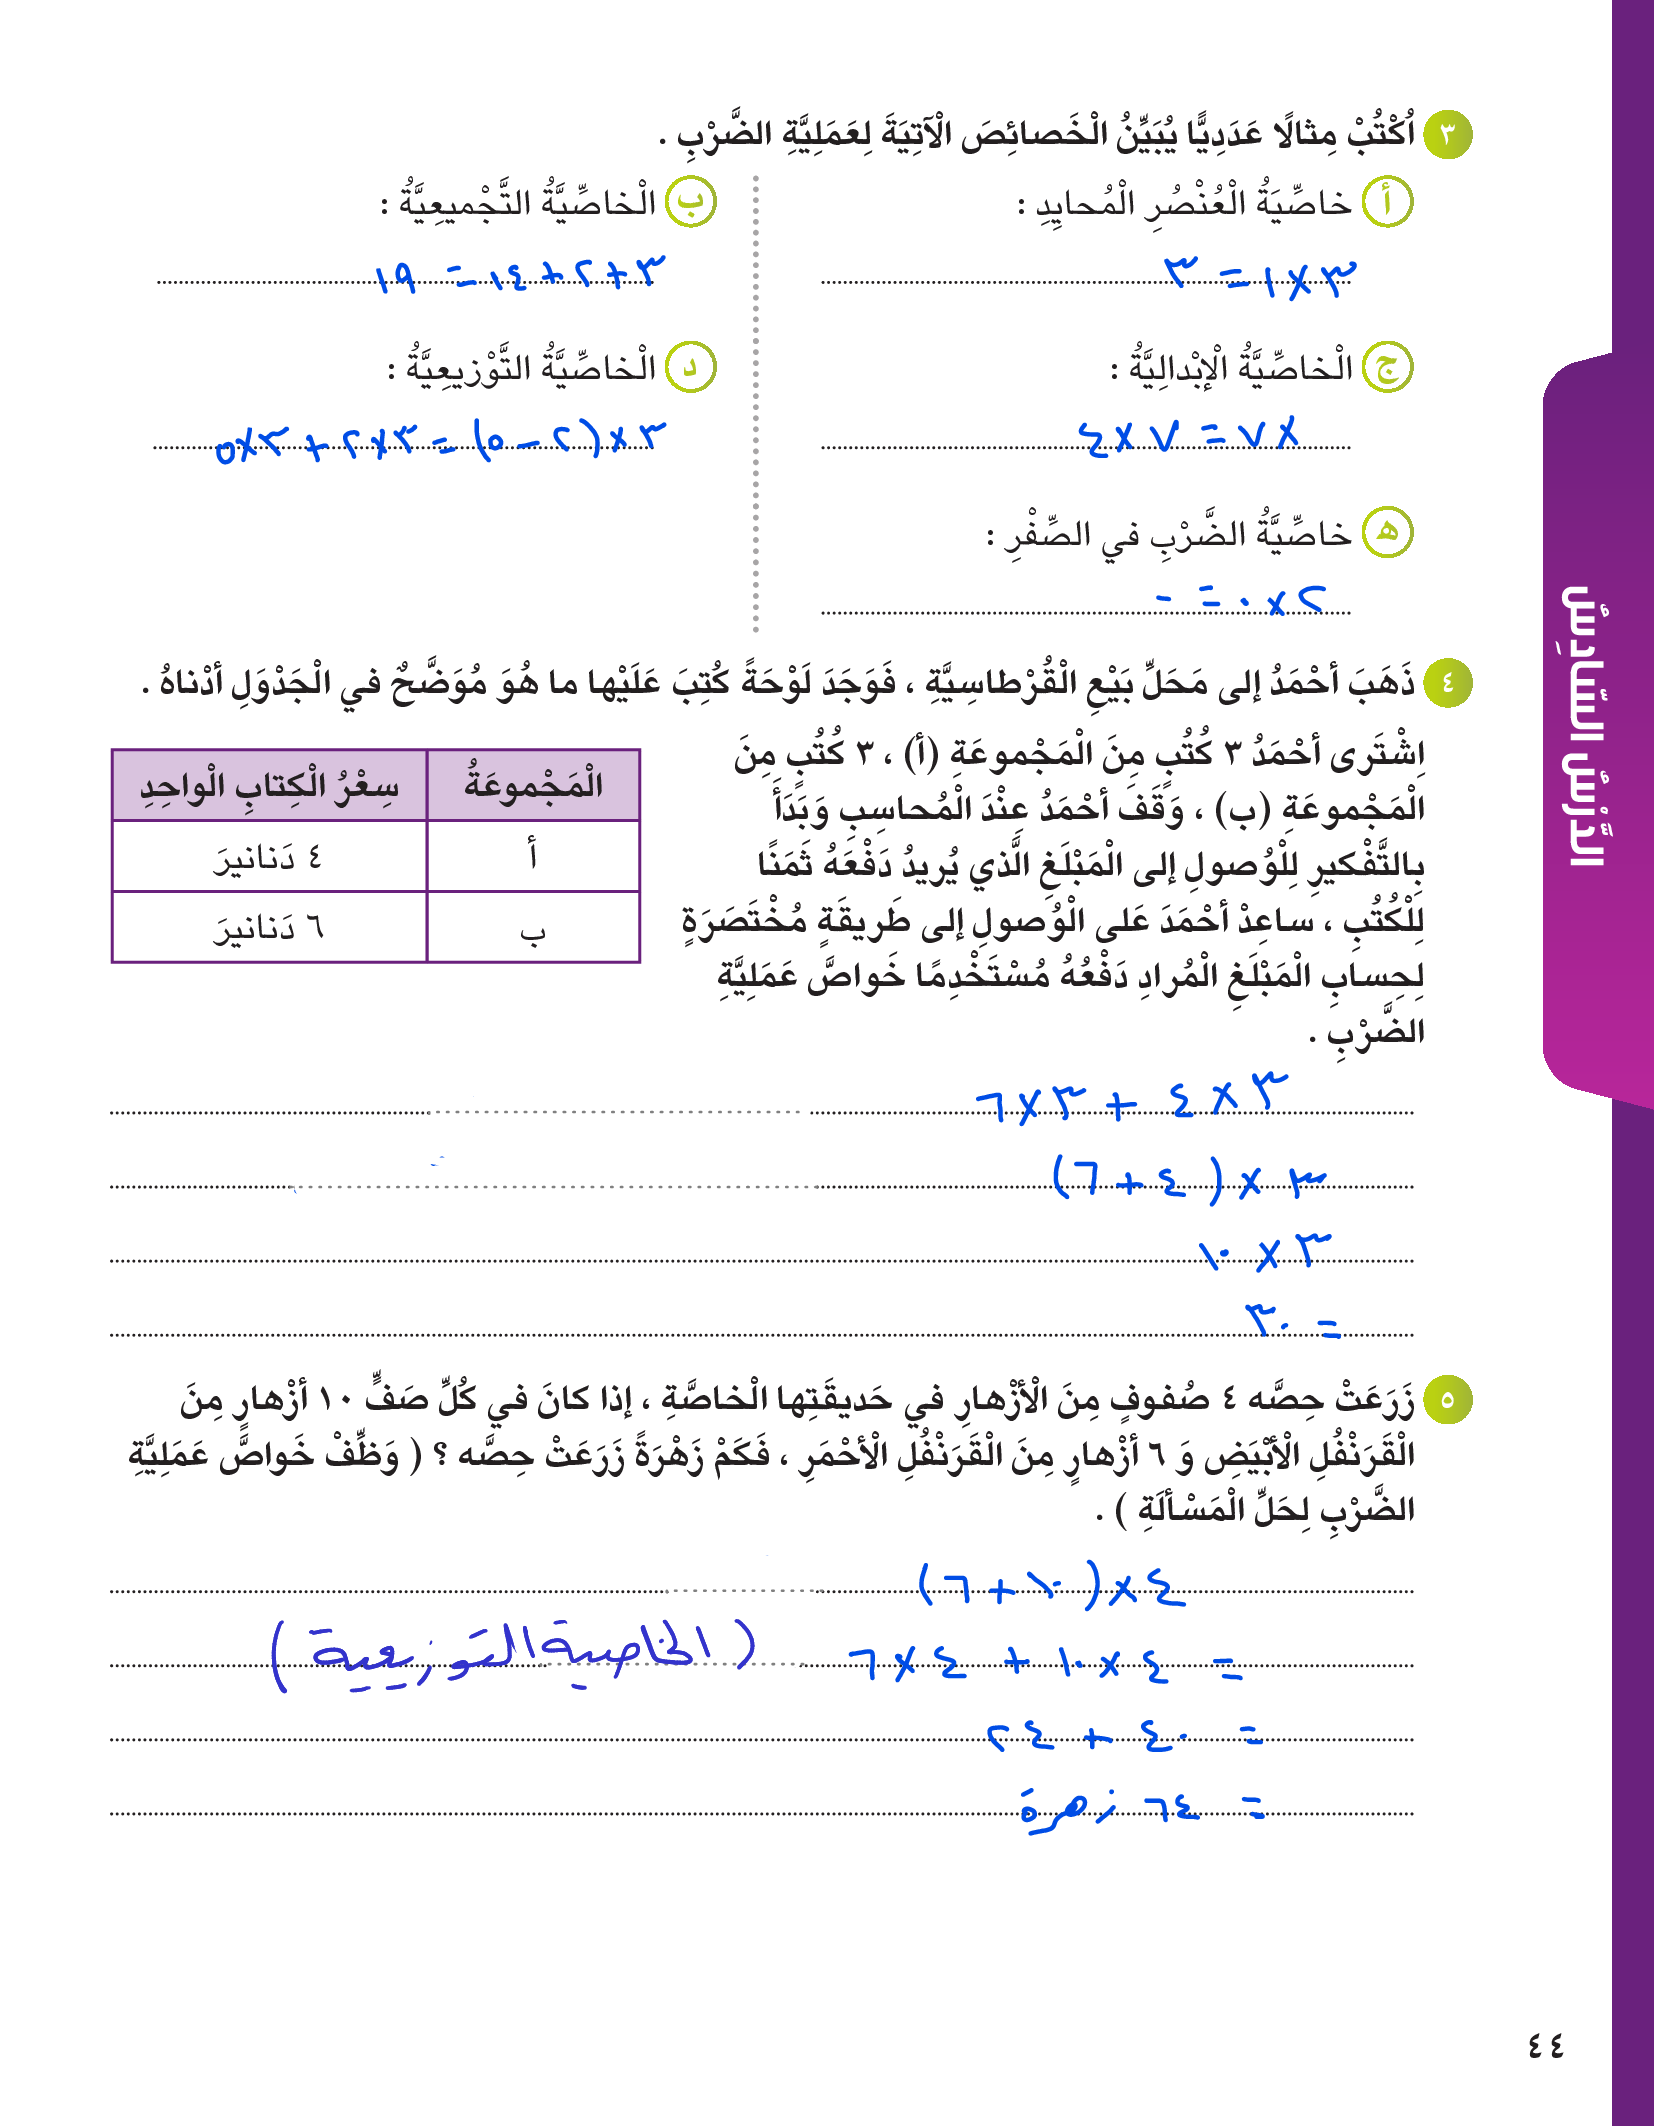 ٣ اُكْتُبْ مِثالًا عَدَدِيًّا يُبَيِّنُ الْخَصائِصَ الْآتِيَةَ لِعَمَلِيَّةِ الضَّرْبِ .
أ خاصِّيَةُ الْعُنْصُرِ الْمُحايِدِ :
٣ × ١ = ٣
ب الْخاصِّيَّةُ التَّجْميعِيَّةُ :
٣ + ٢ + ١٤ = ١٩
ج الْخاصِّيَّةُ الْإبْدالِيَّةُ :
× ٧ = ٧ × ٤
د الْخاصِّيَّةُ التَّوْزيعِيَّةُ :
٣ × (٢ - ٥) = ٣ × ٢ + ٣ × ٥
هـ خاصِّيَّةُ الضَّرْبِ في الصِّفْرِ :
٢ × ٠ = -
٤ ذَهَبَ أحْمَدُ إلى مَحَلِّ بَيْعِ الْقُرْطاسِيَّةِ ، فَوَجَدَ لَوْحَةً كُتِبَ عَلَيْها ما هُوَ مُوَضَّحٌ في الْجَدْوَلِ أدْناهُ .
اِشْتَرى أحْمَدُ ٣ كُتُبٍ مِنَ الْمَجْموعَةِ (أ) ، ٣ كُتُبٍ مِنَ
الْمَجْموعَةِ (ب) ، وَقَفَ أحْمَدُ عِنْدَ الْمُحاسِبِ وَبَدَأَ
بِالتَّفْكيرِ لِلْوُصولِ إلى الْمَبْلَغِ الَّذي يُريدُ دَفْعَهُ ثَمَنًا
لِلْكُتُبِ ، ساعِدْ أحْمَدَ عَلى الْوُصولِ إلى طَريقَةٍ مُخْتَصَرَةٍ
لِحِسابِ الْمَبْلَغِ الْمُرادِ دَفْعُهُ مُسْتَخْدِمًا خَواصَّ عَمَلِيَّةِ
الضَّرْبِ .
الْمَجْموعَةُ سِعْرُ الْكِتابِ الْواحِدِ
أ ٤ دَنانيرَ
ب ٦ دَنانيرَ
٣ × ٤ + ٣ × ٦
٣ × (٤ + ٦)
٣ × ١٠
= ٣٠
٥ زَرَعَتْ حِصَّه ٤ صُفوفٍ مِنَ الْأزْهارِ في حَديقَتِها الْخاصَّةِ ، إذا كانَ في كُلِّ صَفٍّ ١٠ أزْهارٍ مِنَ
الْقَرَنْفُلِ الْأبْيَضِ وَ ٦ أزْهارٍ مِنَ الْقَرَنْفُلِ الْأحْمَرِ ، فَكَمْ زَهْرَةً زَرَعَتْ حِصَّه ؟ ( وَظِّفْ خَواصَّ عَمَلِيَّةِ
الضَّرْبِ لِحَلِّ الْمَسْألَةِ ) .
٤ × (١٠ + ٦)
= ٤ × ١٠ + ٤ × ٦ (الخاصية التوزيعية)
= ٤٠ + ٢٤
= ٦٤ زهرة
الدَّرْسُ السّادِسُ
٤٤